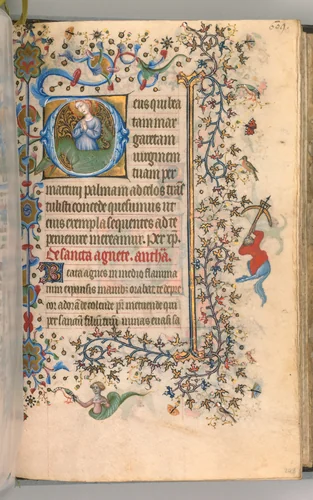 eus qui bea
tam mar
garetam
uirginem
tuam per
martirij palmam ad celos trās
tulisti concede quesumus ut
eius exempla sequentes ad te
peruenire mereamur. Per xp̄m.
De sancta agnete. antha.
Beata agnes in medio flamma
rum expansis manib; orabat te depre
cor adorāde colende pr̄ metuende qui
per sanctū filiū tuū minas euasi sa